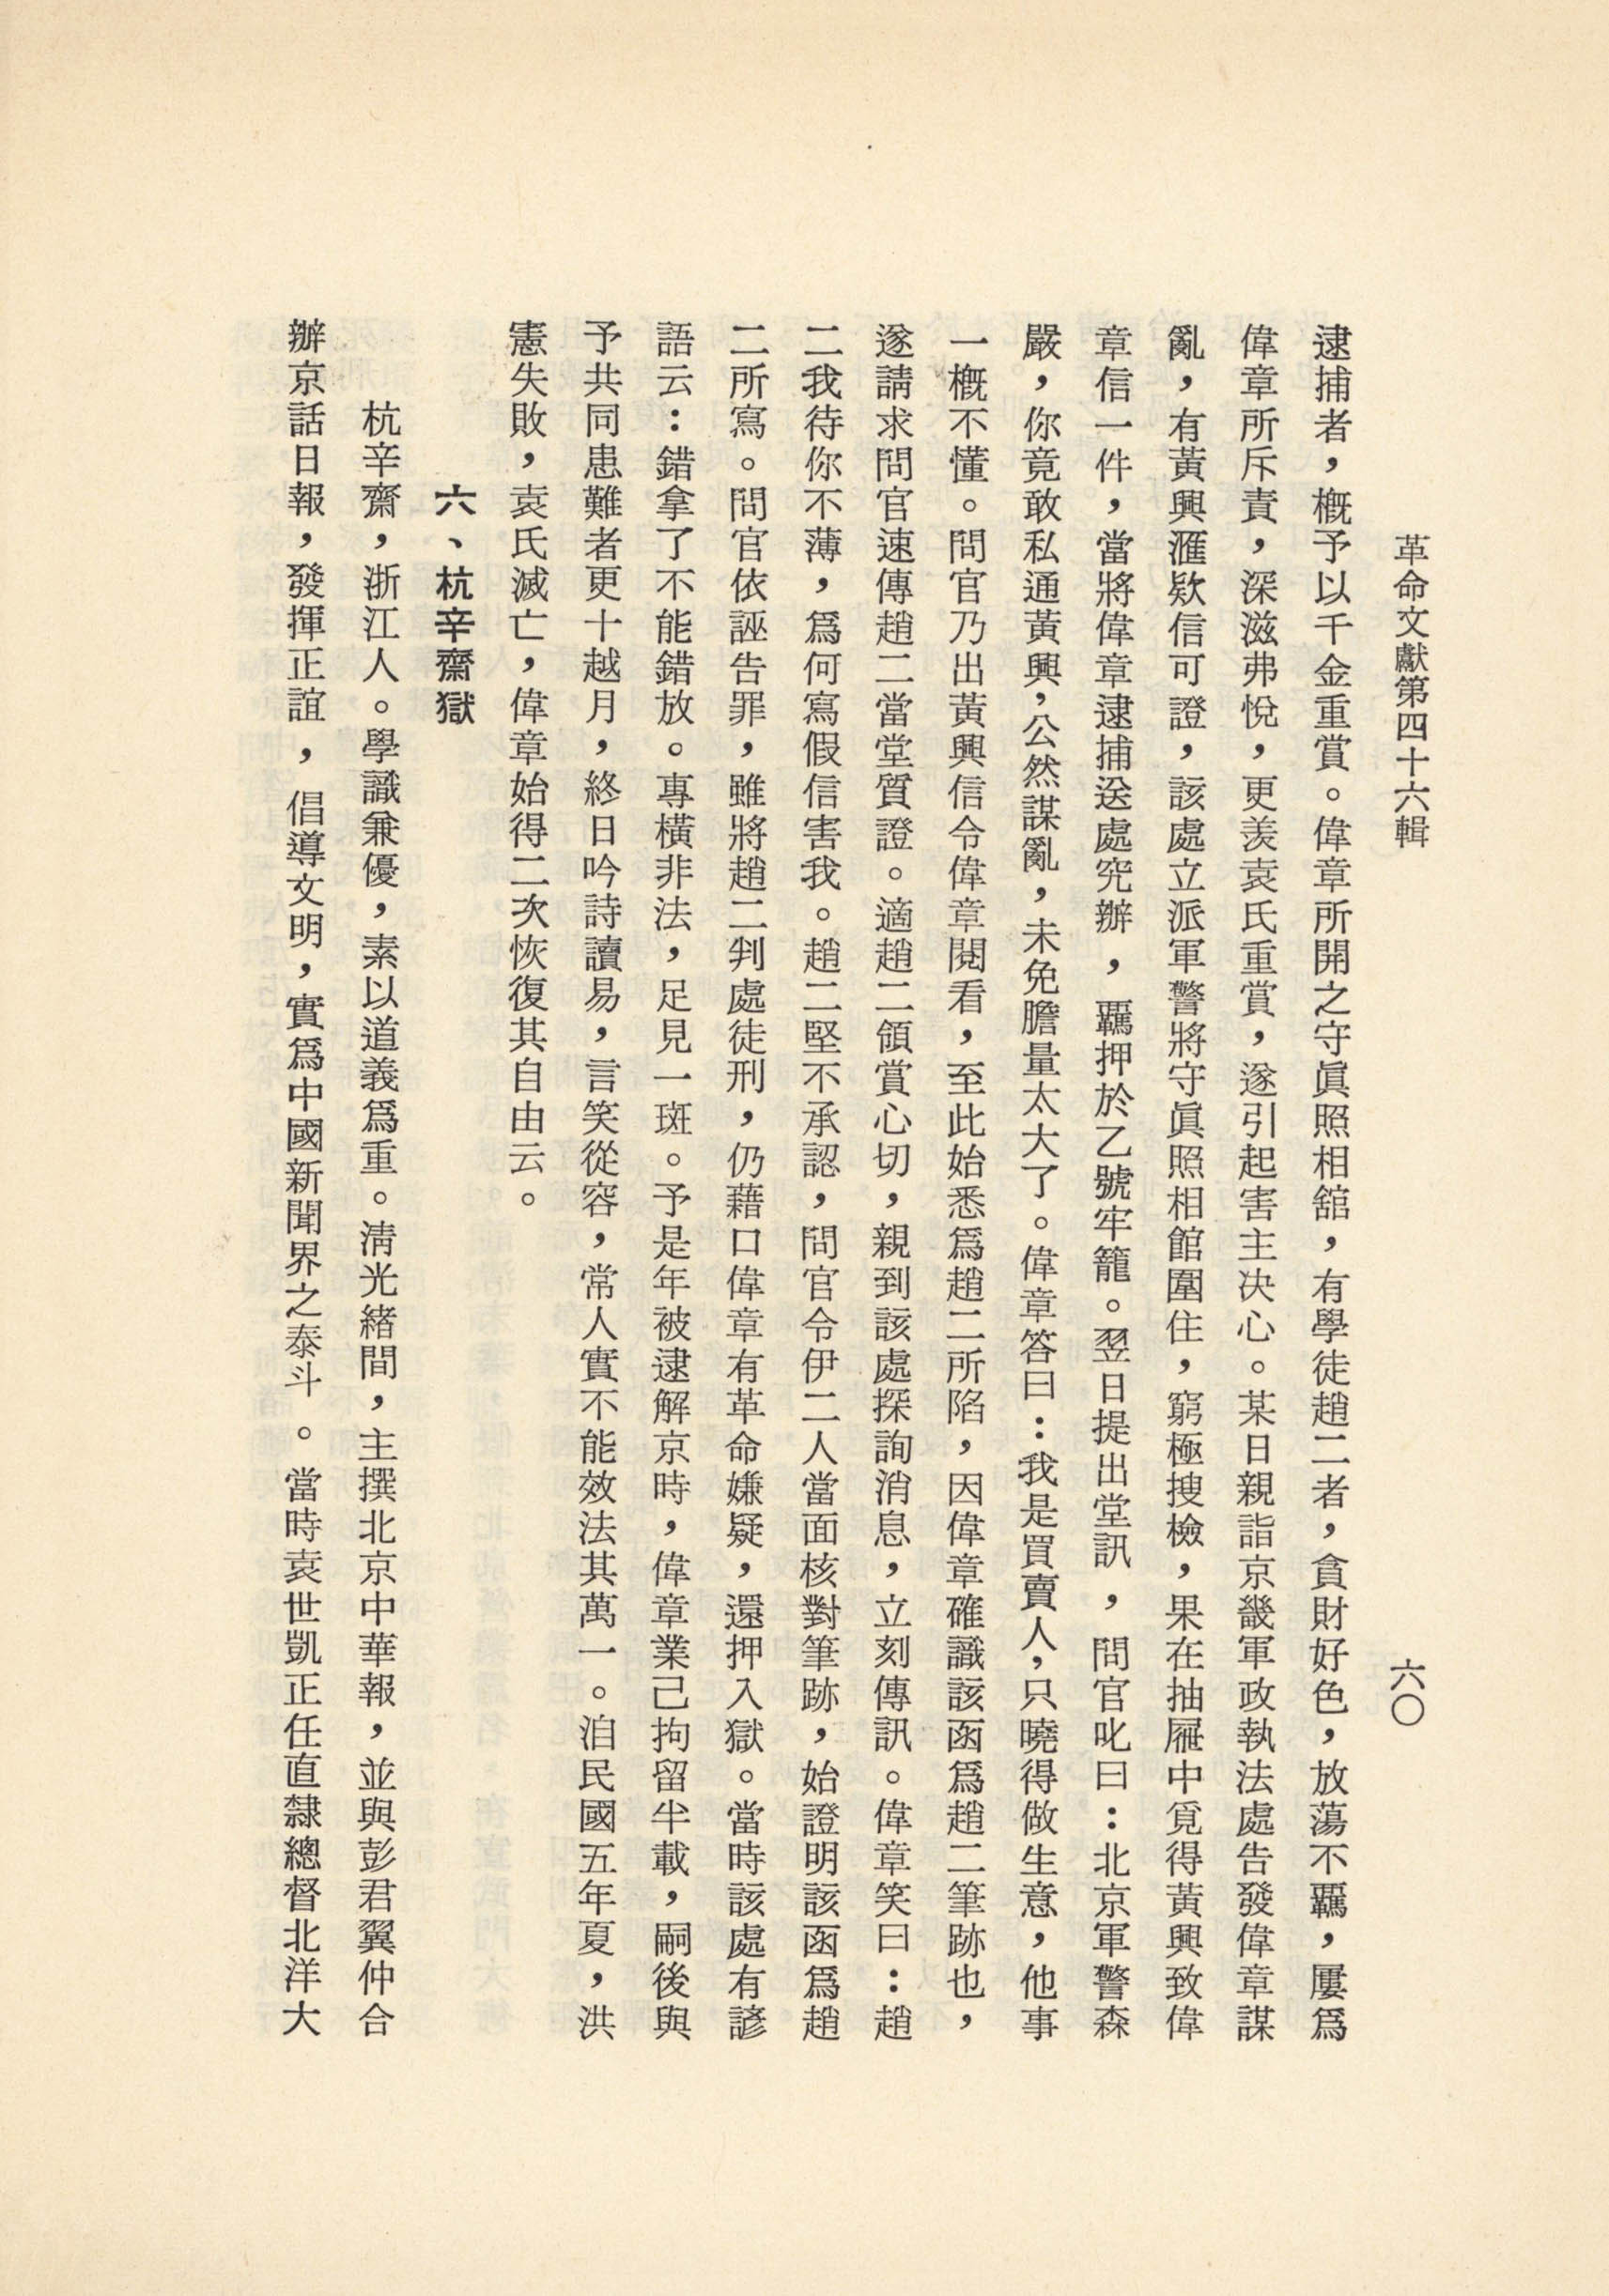 革命文獻第四十六輯
六〇
逮捕者，概予以千金重賞。偉章所開之守眞照相舘，有學徒趙二者，貪財好色，放蕩不羈，屢爲
偉章所斥責，深滋弗悅，更羨袁氏重賞，遂引起害主决心。某日親詣京畿軍政執法處告發偉章謀
亂，有黃興滙欵信可證，該處立派軍警將守眞照相館圍住，窮極搜檢，果在抽屜中覓得黃興致偉
章信一件，當將偉章逮捕送處究辦，羈押於乙號牢籠。翌日提出堂訊，問官叱曰：北京軍警森
嚴，你竟敢私通黃興，公然謀亂，未免膽量太大了。偉章答曰：我是買賣人，只曉得做生意，他事
一概不懂。問官乃出黃興信令偉章閱看，至此始悉爲趙二所陷，因偉章確識該函爲趙二筆跡也，
遂請求問官速傳趙二當堂質證。適趙二領賞心切，親到該處探詢消息，立刻傳訊。偉章笑曰：趙
二我待你不薄，爲何寫假信害我。趙二堅不承認，問官令伊二人當面核對筆跡，始證明該函爲趙
二所寫。問官依誣告罪，雖將趙二判處徒刑，仍藉口偉章有革命嫌疑，還押入獄。當時該處有諺
語云：錯拿了不能錯放。專橫非法，足見一斑。予是年被逮解京時，偉章業己拘留半載，嗣後與
予共同患難者更十越月，終日吟詩讀易，言笑從容，常人實不能效法其萬一。洎民國五年夏，洪
憲失敗，袁氏滅亡，偉章始得二次恢復其自由云。
六、杭辛齋獄
杭辛齋，浙江人。學識兼優，素以道義爲重。淸光緒間，主撰北京中華報，並與彭君翼仲合
辦京話日報，發揮正誼，倡導文明，實爲中國新聞界之泰斗。當時袁世凱正任直隸總督北洋大